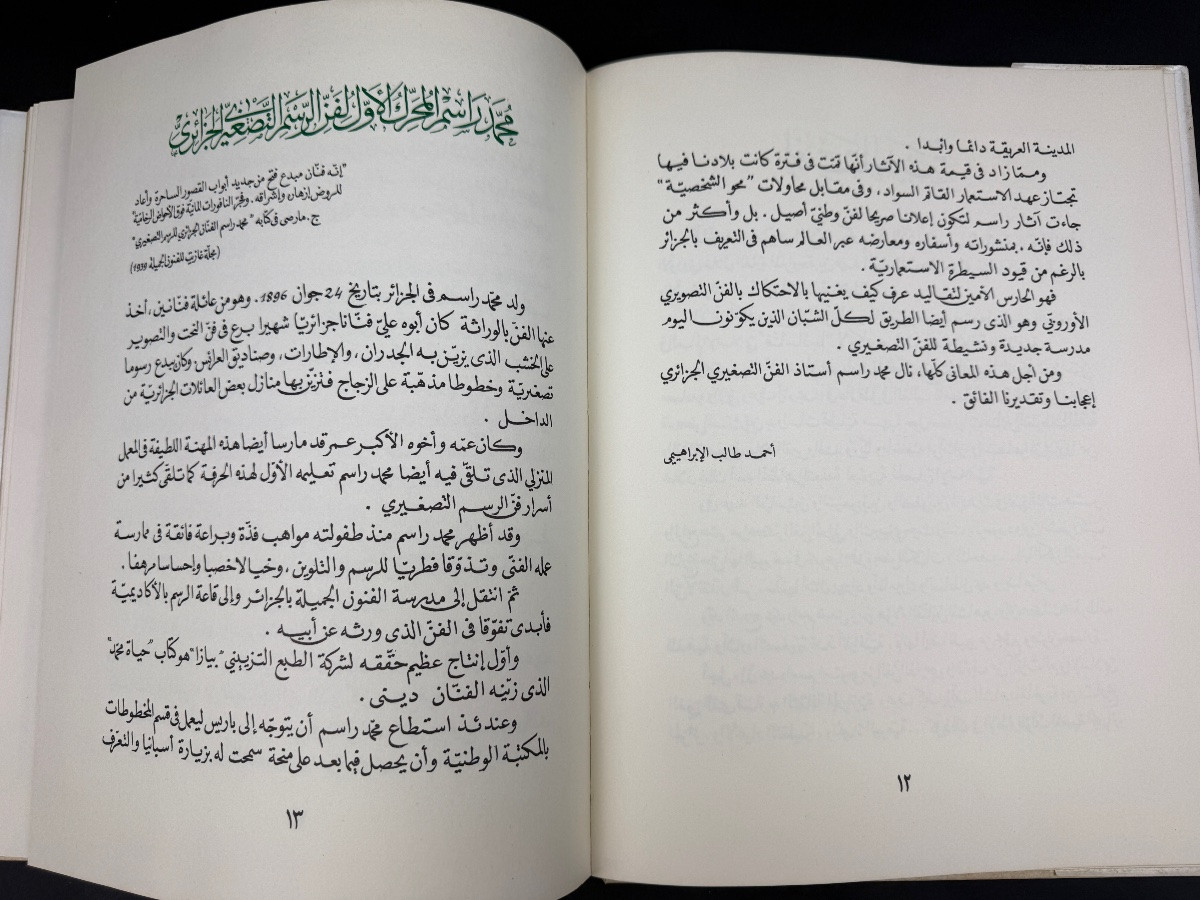 المدينة العريقة دائما وأبدا .
ومما زاد في قيمة هذه الآثار أنها تمت في فترة كانت بلادنا فيها
تجتاز عهد الاستعمار القاتم السواد، وفي مقابل محاولات "محو الشخصيّة"
جاءت آثار راسم لتكون إعلانا صريحا لفنّ وطنيّ أصيل . بل وأكثر من
ذلك فإنّه . بمنشوراته وأسفاره ومعارضه عبر العالم ساهم في التعريف بالجزائر
بالرغم من قيود السيطرة الاستعماريّة .
فهو الحارس الأمين لتقاليد عرف كيف يغنيها بالاحتكاك بالفنّ التصويري
الأوروبّي وهو الذي رسم أيضا الطريق لكلّ الشبّان الذين يكوّنون اليوم
مدرسة جديدة ونشيطة للفنّ التصغيري .
ومن أجل هذه المعاني كلّها، نال محمد راسم أستاذ الفنّ التصغيري الجزائري
إعجابنا وتقديرنا الفائق .
أحمد طالب الإبراهيمي
١٢
محمّد راسم المحرّك الأوّل لفنّ الرّسم التّصغيري الجزائري
"إنّه فنّان مبدع فتح من جديد أبواب القصور الساحرة وأعاد
للروض إزهاره وإشراقه . وفجّر النافورات المائيّة فوق الأحواض الرخاميّة"
ج. مارصي في كتابه "محمد راسم الفنّان الجزائري للرسم التصغيري"
(مجلّة غازيت للفنون الجميلة 1939)
ولد محمّد راسم في الجزائر بتاريخ 24 جوان 1896. وهو من عائلة فنّانين، أخذ
عنها الفنّ بالوراثة كان أبوه عليّ فنّانا جزائريّا شهيرا برع في فنّ النحت والتصوير
على الخشب الذي يزيّن به الجدران، والإطارات، وصناديق العرائس وكان يبدع رسوما
تصغيريّة وخطوطا مذهبة على الزجاج فتزيّن بها منازل بعض العائلات الجزائريّة من
الداخل .
وكان عمّه وأخوه الأكبر عمر قد مارسا أيضا هذه المهنة اللطيفة في المعمل
المنزلي الذي تلقّى فيه أيضا محمد راسم تعليمه الأوّل لهذه الحرفة كما تلقّى كثيرا من
أسرار فنّ الرسم التصغيري .
وقد أظهر محمد راسم منذ طفولته مواهب فذّة وبراعة فائقة في ممارسة
عمله الفنّي وتذوّقا فطريّا للرسم والتلوين، وخيالا خصبا وإحساسا مرهفا .
ثمّ انتقل إلى مدرسة الفنون الجميلة بالجزائر وإلى قاعة الرسم بالأكاديميّة
فأبدى تفوّقا في الفنّ الذي ورثه عن أبيه .
وأوّل إنتاج عظيم حقّقه لشركة الطبع التزييني "بيازا" هو كتاب "حياة محمّد"
الذي زيّنه الفنّان ديني .
وعندئذ استطاع محمّد راسم أن يتوجّه إلى باريس ليعمل في قسم المخطوطات
بالمكتبة الوطنيّة وأن يحصل فيما بعد على منحة سمحت له بزيارة أسبانيا والتعرّف
١٣